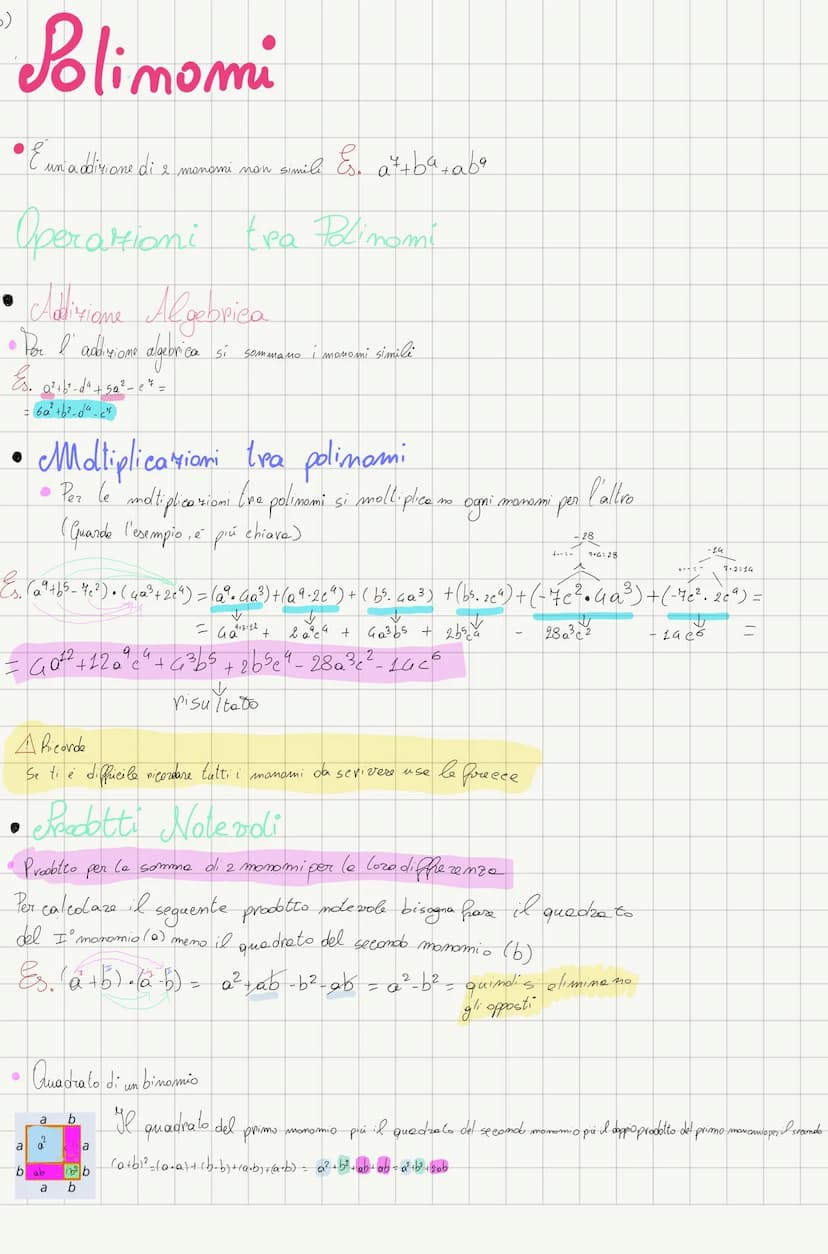 Polinomi
È un'addizione di 2 monomi non simili Es. a⁷+b⁴+ab⁹
Operazioni tra Polinomi
Addizione Algebrica
Per l'addizione algebrica si sommano i monomi simili
Es. a²+b²-d⁴+5a²-c⁷=
= 6a²+b²-d⁴-c⁷
Moltiplicazioni tra polinomi
Per le moltiplicazioni tra polinomi si moltiplicano ogni monomi per l'altro
(Guarda l'esempio, è più chiara)
-28 -14
7·4=28 7·2=14
Es. (a⁹+b⁵-7c²)·(4a³+2c⁴)=(a⁹·4a³)+(a⁹·2c⁴)+(b⁵·4a³)+(b⁵·2c⁴)+(-7c²·4a³)+(-7c²·2c⁴)=
= 4a⁹⁺³⁼¹² + 2a⁹c⁴ + 4a³b⁵ + 2b⁵c⁴ - 28a³c² - 14c⁶ =
= 4a¹²+12a⁹c⁴+4³b⁵+2b⁵c⁴-28a³c²-14c⁶
risultato
Ricorda
Se ti è difficile ricordare tutti i monomi da scrivere usa le frecce
Prodotti Notevoli
Prodotto per la somma di 2 monomi per la loro differenza
Per calcolare il seguente prodotto notevole bisogna fare il quadrato
del I° monomio (a) meno il quadrato del secondo monomio (b)
Es. (a+b)·(a-b)= a²+ab-b²-ab = a²-b² = quindi s eliminano
gli opposti
Quadrato di un binomio
a b
Il quadrato del primo monomio più il quadrato del secondo monomio più il doppio prodotto del primo monomio per il secondo
a a² a
b ab b² b
(a+b)²=(a·a)+(b·b)+(a·b)+(a·b)= a²+b²+ab+ab=a²+b²+2ab
a b